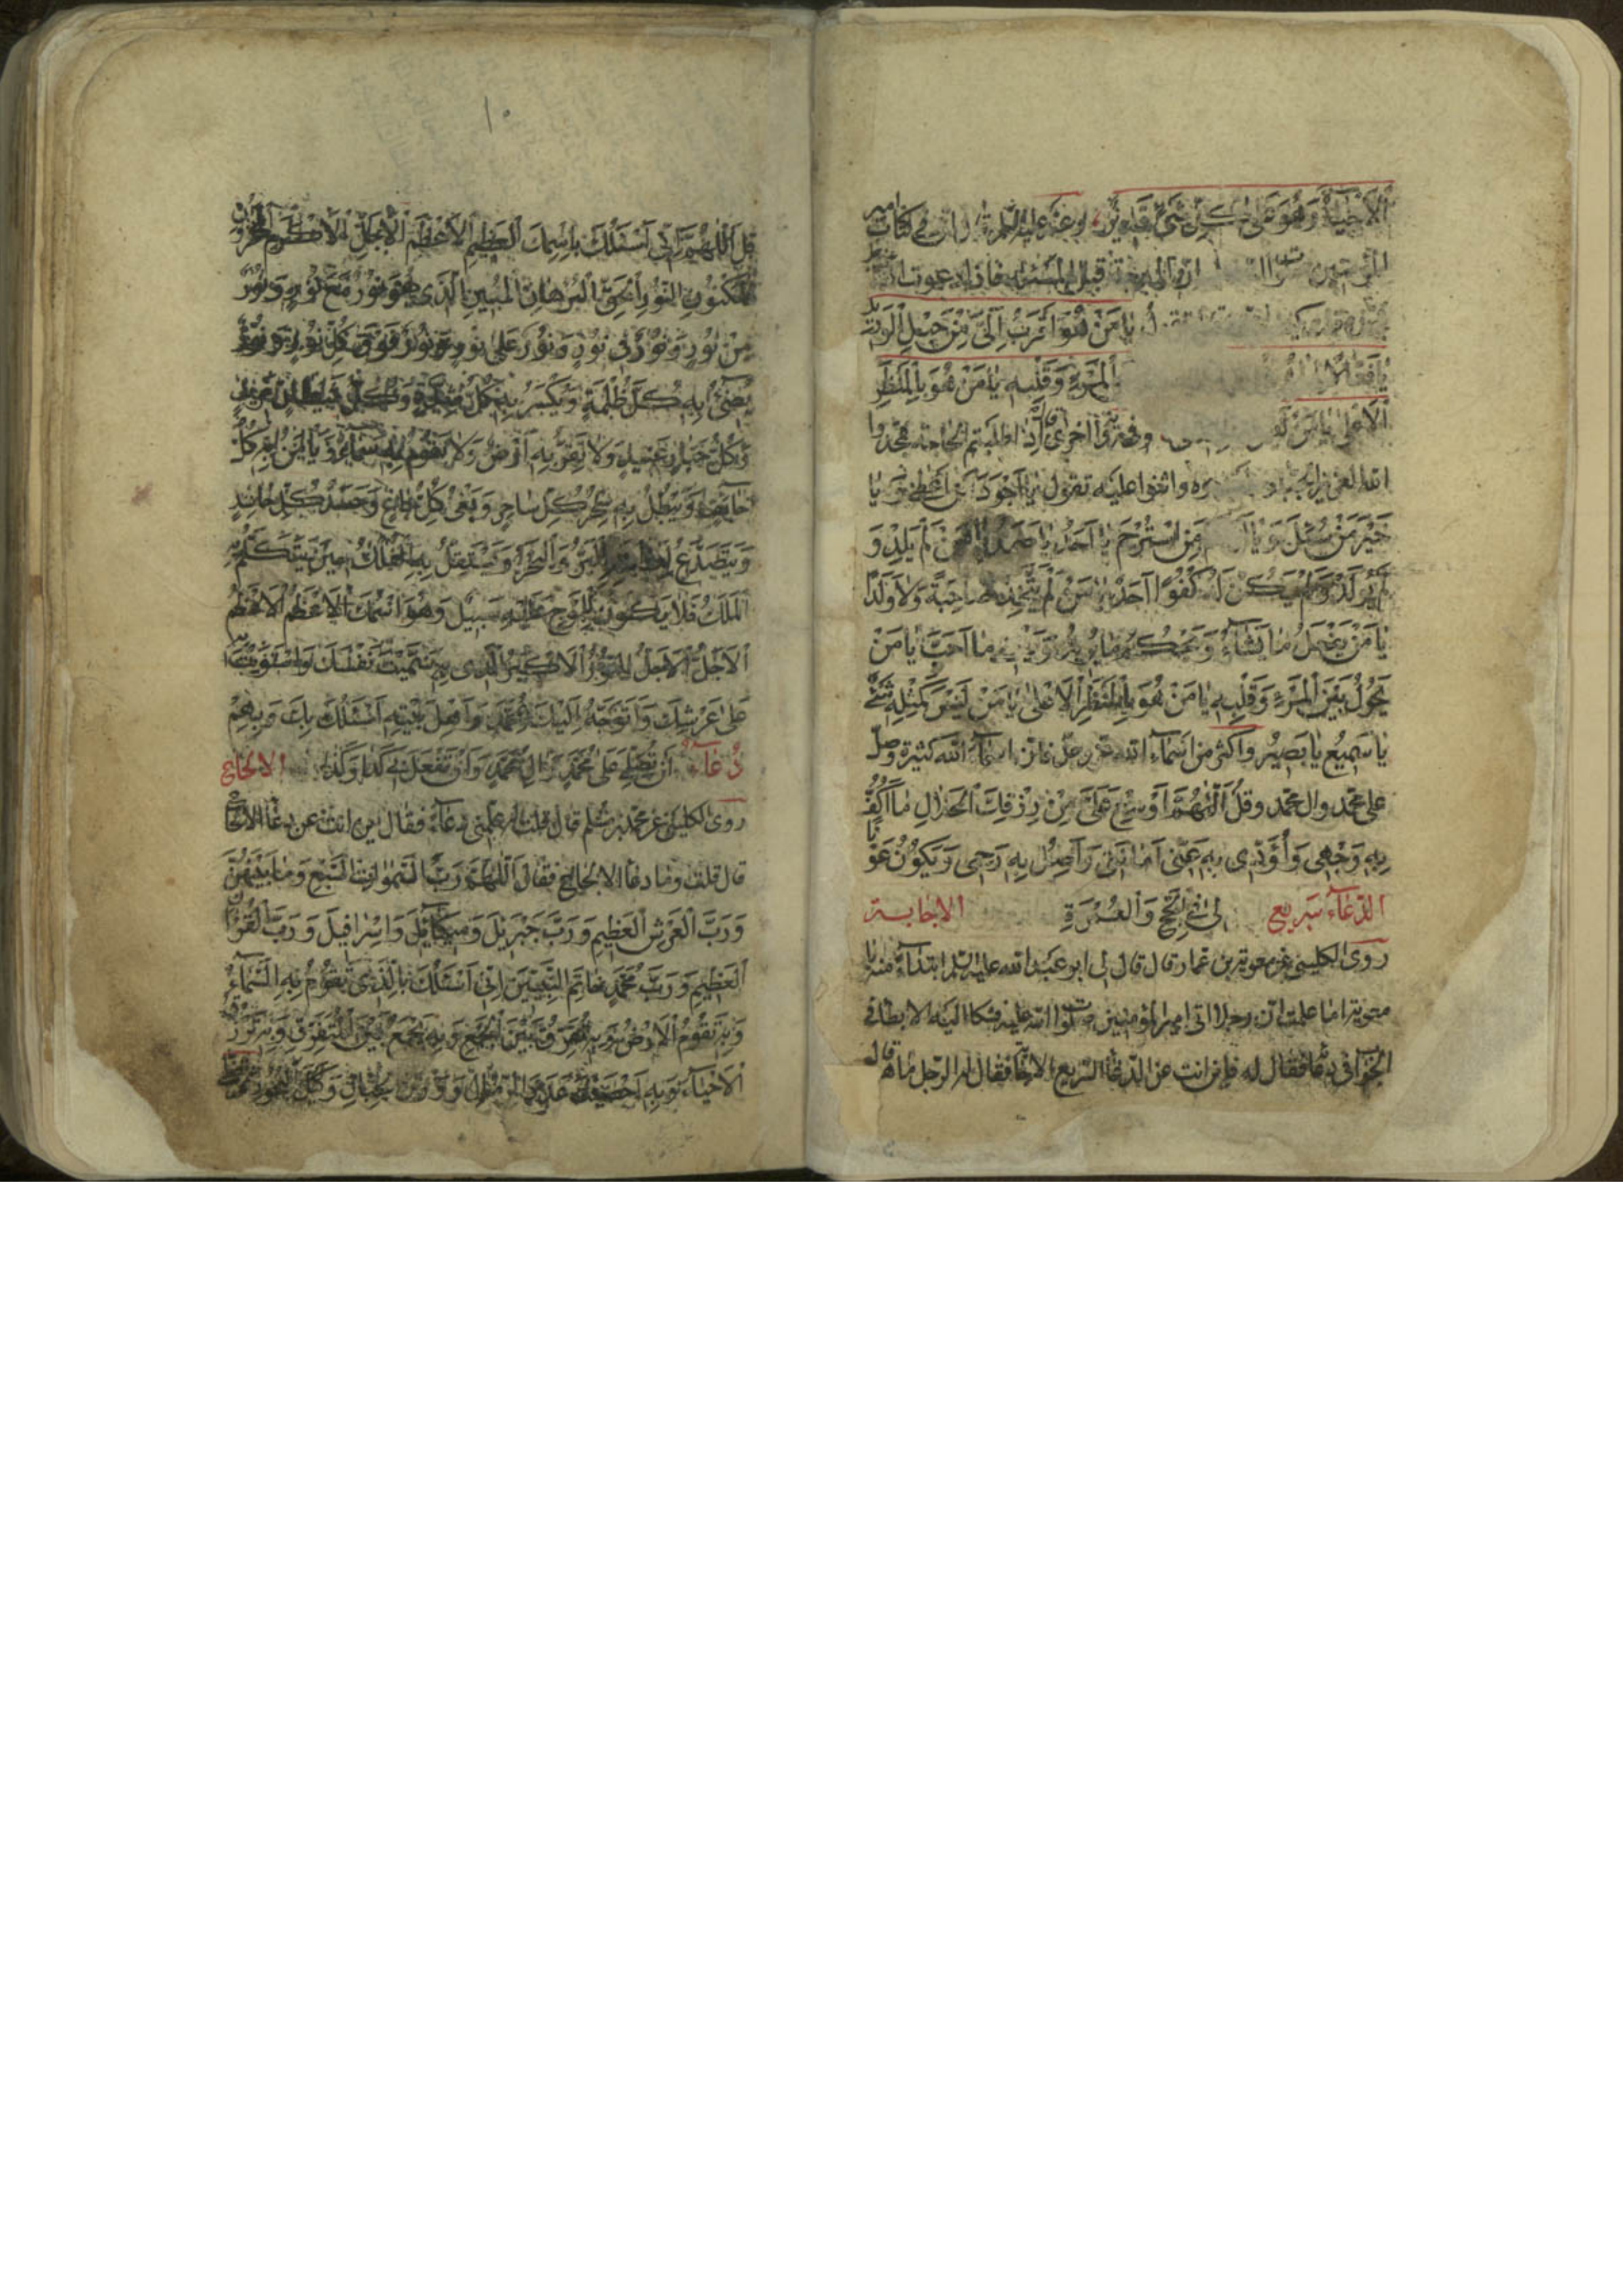 الْاَحْيَاءَ وَهُوَ عَلٰى كُلِّ شَيْءٍ قَدِيرٌ وعنه عليه السلم ان في كتاب امير
المؤمنين ان المدحة قبل المسئلة فاذا دعوت الله
يَا مَنْ هُوَ اَقْرَبُ اِلَيَّ مِنْ حَبْلِ الْوَرِيدِ
يَا فَعَّالًا الْمَرْءِ وَقَلْبِهِ يَا مَنْ هُوَ بِالْمَنْظَرِ
الْاَعْلٰى يَا مَنْ وفي رواية اخرى قال اذا طلبتم الحاجة فمجدوا
الله العزيز الجبار واثنوا عليه تقول يَا اَجْوَدَ مَنْ اَعْطٰى وَ يَا
خَيْرَ مَنْ سُئِلَ وَ يَا مَنِ اسْتُرْحِمَ يَا اَحَدُ يَا صَمَدُ يَا مَنْ لَمْ يَلِدْ وَ
لَمْ يُولَدْ وَلَمْ يَكُنْ لَهُ كُفُوًا اَحَدٌ يَا مَنْ لَمْ يَتَّخِذْ صَاحِبَةً وَلَا وَلَدًا
يَا مَنْ يَفْعَلُ مَا يَشَاءُ وَيَحْكُمُ مَا يُرِيدُ وَيَقْضِي مَا اَحَبَّ يَا مَنْ
يَحُولُ بَيْنَ الْمَرْءِ وَقَلْبِهِ يَا مَنْ هُوَ بِالْمَنْظَرِ الْاَعْلٰى يَا مَنْ لَيْسَ كَمِثْلِهِ شَيْءٌ
يَا سَمِيعُ يَا بَصِيرُ واكثر من اسماء الله عز وجل فان اسماء الله كثيرة وصل
على محمد وال محمد وقل اَللّٰهُمَّ اَوْسِعْ عَلَيَّ مِنْ رِزْقِكَ الْحَلَالِ مَا اَكُفُّ
بِهِ وَجْهِي وَاُؤَدِّي بِهِ عَنِّي اَمَانَتِي وَاَصِلُ بِهِ رَحِمِي وَيَكُونُ عَوْنًا
الدعاء سريع لِي فِي الْحَجِّ وَالْعُمْرَةِ الاجابة
روى الكليني عن معوية بن عمار قال قال لي ابو عبد الله عليه السلم ابتداء منه يا
معوية اما علمت ان رجلا اتى امير المؤمنين صلوات الله عليه فشكا اليه الابطاء في
الجواب في دعائه فقال له فاين انت عن الدعاء السريع الاجابة فقال له الرجل ما هو قال
١٠
قل اَللّٰهُمَّ اِنِّي اَسْئَلُكَ بِاسْمِكَ الْعَظِيمِ الْاَعْظَمِ الْاَجَلِّ الْاَكْرَمِ الْمَخْزُونِ
الْمَكْنُونِ النُّورِ الْحَقِّ الْبُرْهَانِ الْمُبِينِ الَّذِي هُوَ نُورٌ مَعَ نُورٍ وَنُورٌ
مِنْ نُورٍ وَنُورٌ فِي نُورٍ وَنُورٌ عَلٰى نُورٍ وَنُورٌ فَوْقَ كُلِّ نُورٍ وَنُورٌ
يُضِيءُ بِهِ كُلُّ ظُلْمَةٍ وَيُكْسَرُ بِهِ كُلُّ شِدَّةٍ وَكُلُّ شَيْطَانٍ مَرِيدٍ
وَكُلُّ جَبَّارٍ عَنِيدٍ وَلَا تَقِرُّ بِهِ اَرْضٌ وَلَا تَقُومُ بِهِ سَمَاءٌ وَيَأْمَنُ بِهِ كُلُّ
خَائِفٍ وَيَبْطُلُ بِهِ سِحْرُ كُلِّ سَاحِرٍ وَبَغْيُ كُلِّ بَاغٍ وَحَسَدُ كُلِّ حَاسِدٍ
وَيَتَصَدَّعُ لِعَظَمَتِهِ الْبَرُّ وَالْبَحْرُ وَيَسْتَقِلُّ بِهِ الْفُلْكُ حِينَ يَتَكَلَّمُ بِهِ
الْمَلَكُ فَلَا يَكُونُ لِلْمَوْجِ عَلَيْهِ سَبِيلٌ وَهُوَ اسْمُكَ الْاَعْظَمُ الْاَعْظَمُ
الْاَجَلُّ الْاَجَلُّ النُّورُ الْاَكْبَرُ الَّذِي بِهِ سَمَّيْتَ نَفْسَكَ وَاسْتَوَيْتَ بِهِ
عَلٰى عَرْشِكَ وَاَتَوَجَّهُ اِلَيْكَ بِمُحَمَّدٍ وَاَهْلِ بَيْتِهِ اَسْئَلُكَ بِكَ وَبِهِمْ
دعاء اَنْ تُصَلِّيَ عَلٰى مُحَمَّدٍ وَاٰلِ مُحَمَّدٍ وَاَنْ تَفْعَلَ بِي كَذَا وَكَذَا الالحاح
روى الكليني عن محمد بن مسلم قال قلت له علمني دعاء فقال اين انت عن دعاء الالحاح
قال قلت وما دعاء الالحاح فقال اَللّٰهُمَّ رَبَّ السَّمٰوَاتِ السَّبْعِ وَمَا بَيْنَهُنَّ
وَرَبَّ الْعَرْشِ الْعَظِيمِ وَرَبَّ جَبْرَئِيلَ وَمِيكَائِيلَ وَاِسْرَافِيلَ وَرَبَّ الْقُرْاٰنِ
الْعَظِيمِ وَرَبَّ مُحَمَّدٍ خَاتَمِ النَّبِيِّينَ اِنِّي اَسْئَلُكَ بِالَّذِي تَقُومُ بِهِ السَّمَاءُ
وَبِهِ تَقُومُ الْاَرْضُ وَبِهِ تُفَرِّقُ بَيْنَ الْجَمْعِ وَبِهِ تَجْمَعُ بَيْنَ الْمُتَفَرِّقِ وَبِهِ تَرْزُقُ
الْاَحْيَاءَ وَبِهِ اَحْصَيْتَ عَدَدَ الرِّمَالِ وَوَزْنَ الْجِبَالِ وَكَيْلَ الْبُحُورِ